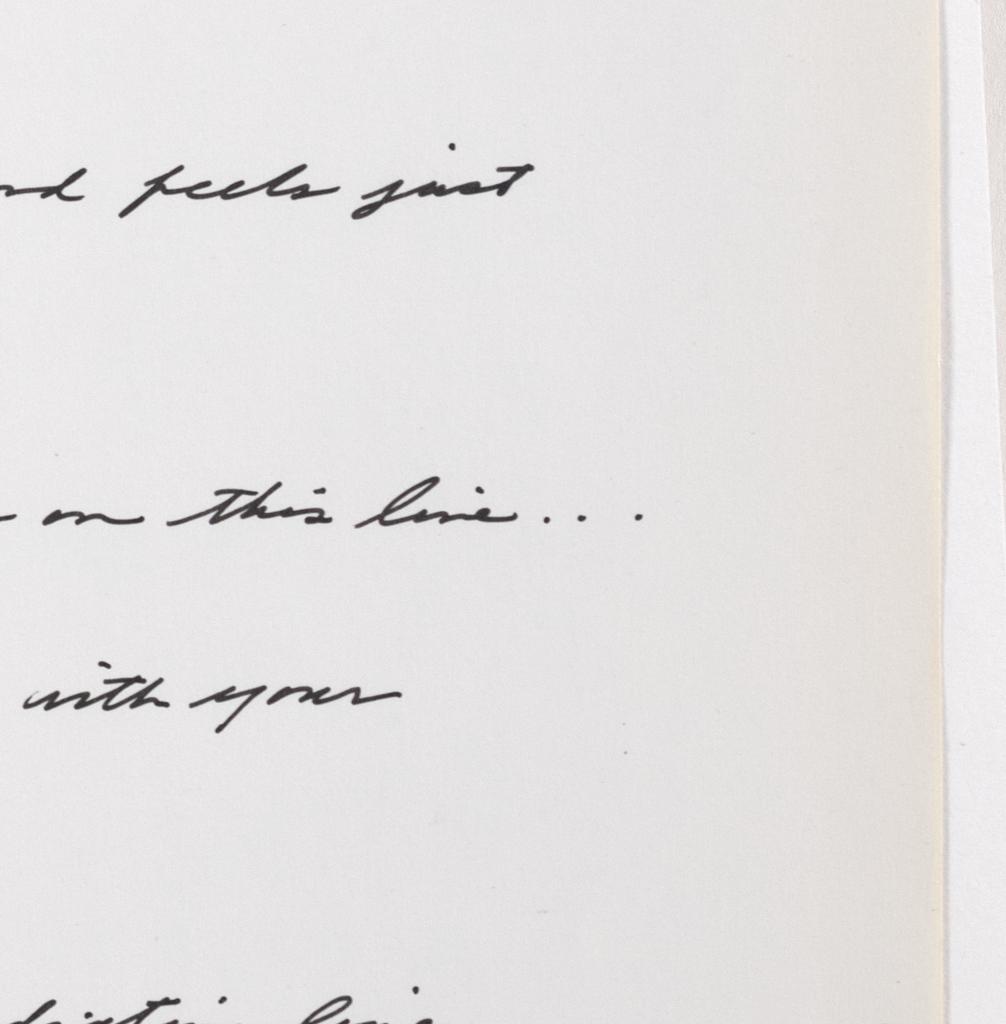 feels just
on this line...
with your